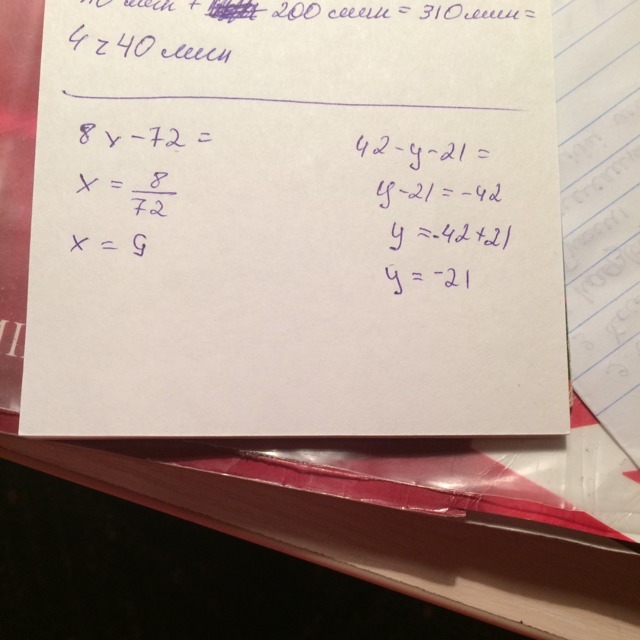 + 200 мин = 310 мин =
4 ч 40 мин
8x - 72 =
x = 8/72
x = 9
42 - y - 21 =
y - 21 = -42
y = -42 + 21
y = -21